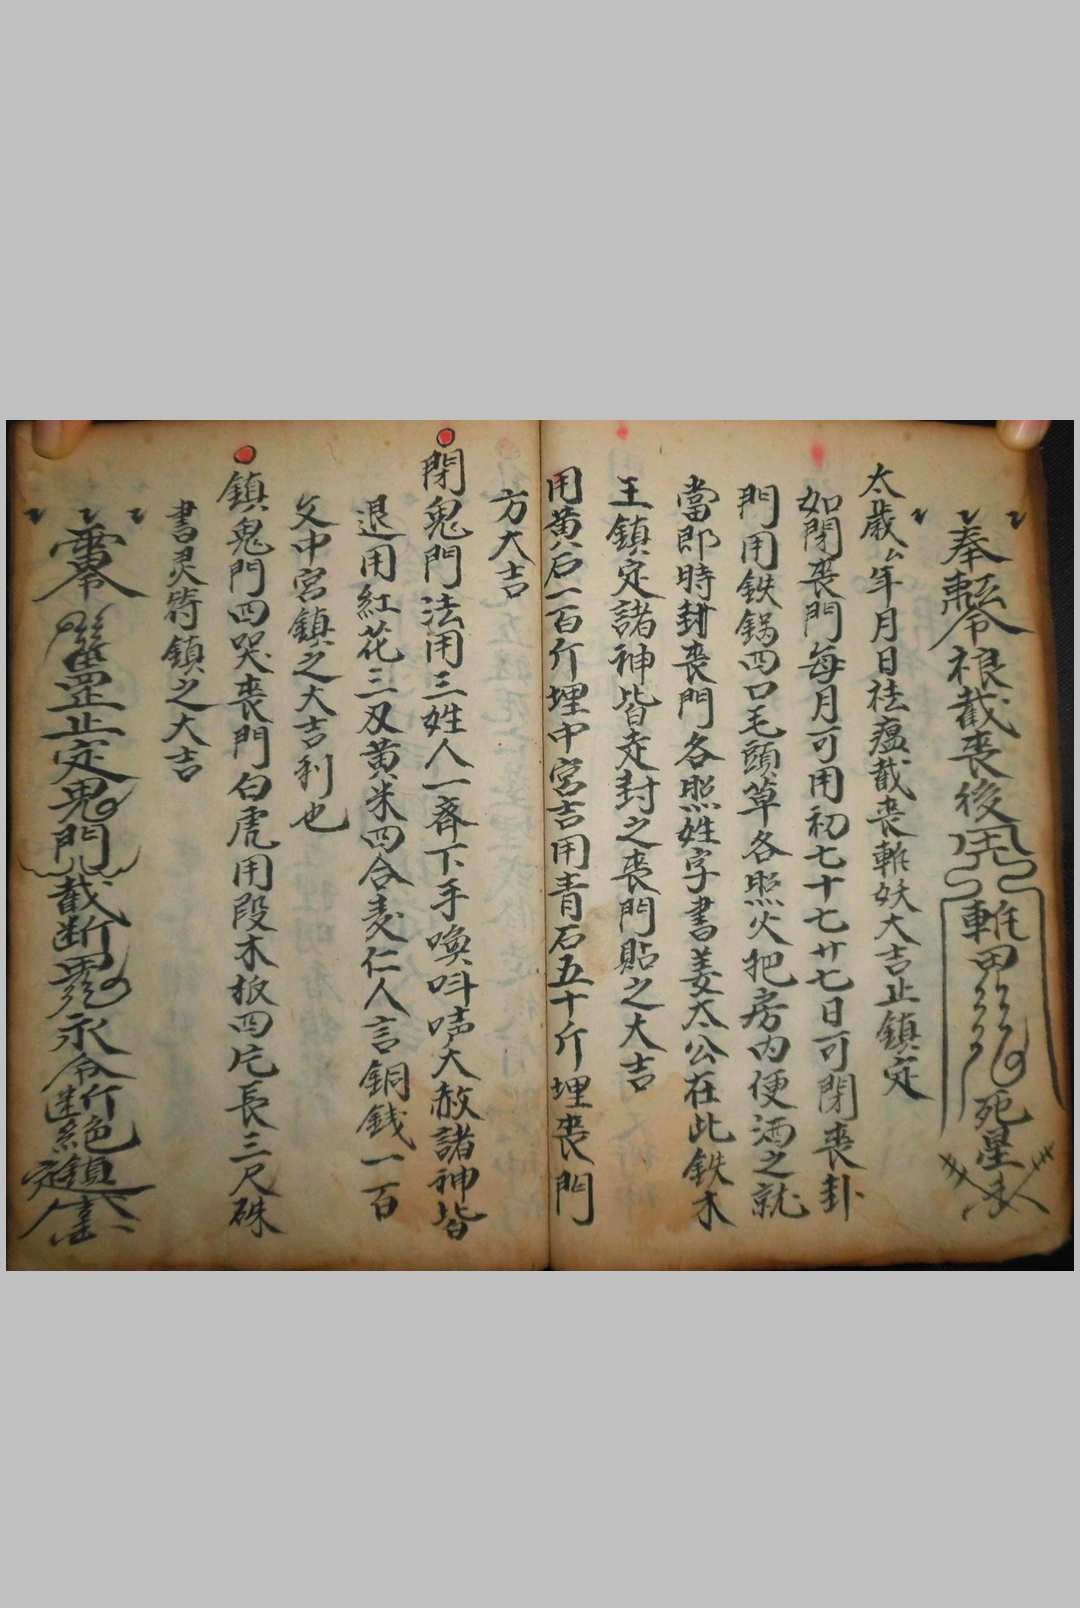 奉 令 截喪後 死星
太歲厶年月日祛瘟截喪 妖大吉止鎮定
如閉喪門每月可用初七十七廿七日可閉喪卦
門用鉄鍋四口毛頭草各照火把房內便洒之就
當即時封喪門各照姓字書姜太公在此鉄木
王鎮定諸神皆走封之喪門貼之大吉
用黄石一百斤埋中宮吉用青石五十斤埋喪門
方大吉
閉鬼門法用三姓人一齊下手喚呌声大赦諸神皆
退用紅花三双黄米四合麦仁人言銅銭一百
文中宮鎮之大吉利也
鎮鬼門四哭喪門白虎用段木板四片長三尺硃
書灵符鎮之大吉
罡止定鬼門截断 永令斷絕鎮定